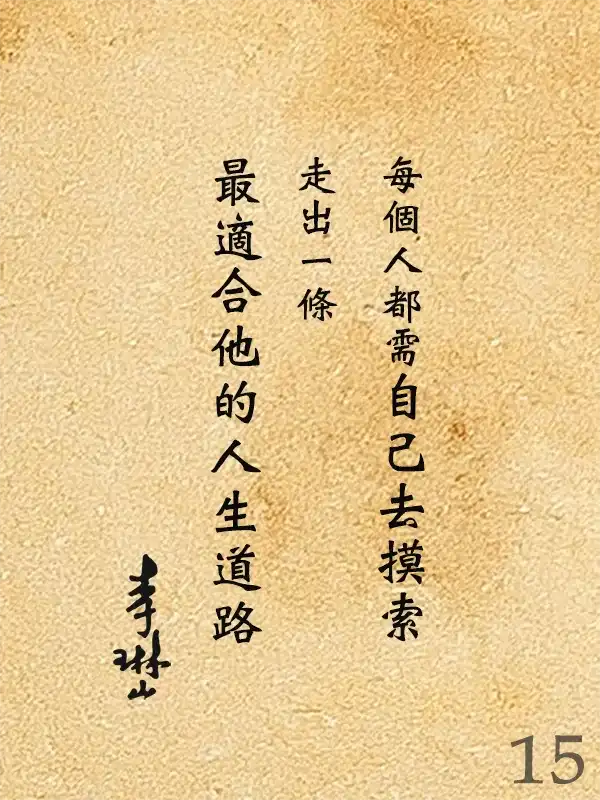 每個人都需自己去摸索
走出一條
最適合他的人生道路
李琳山
15